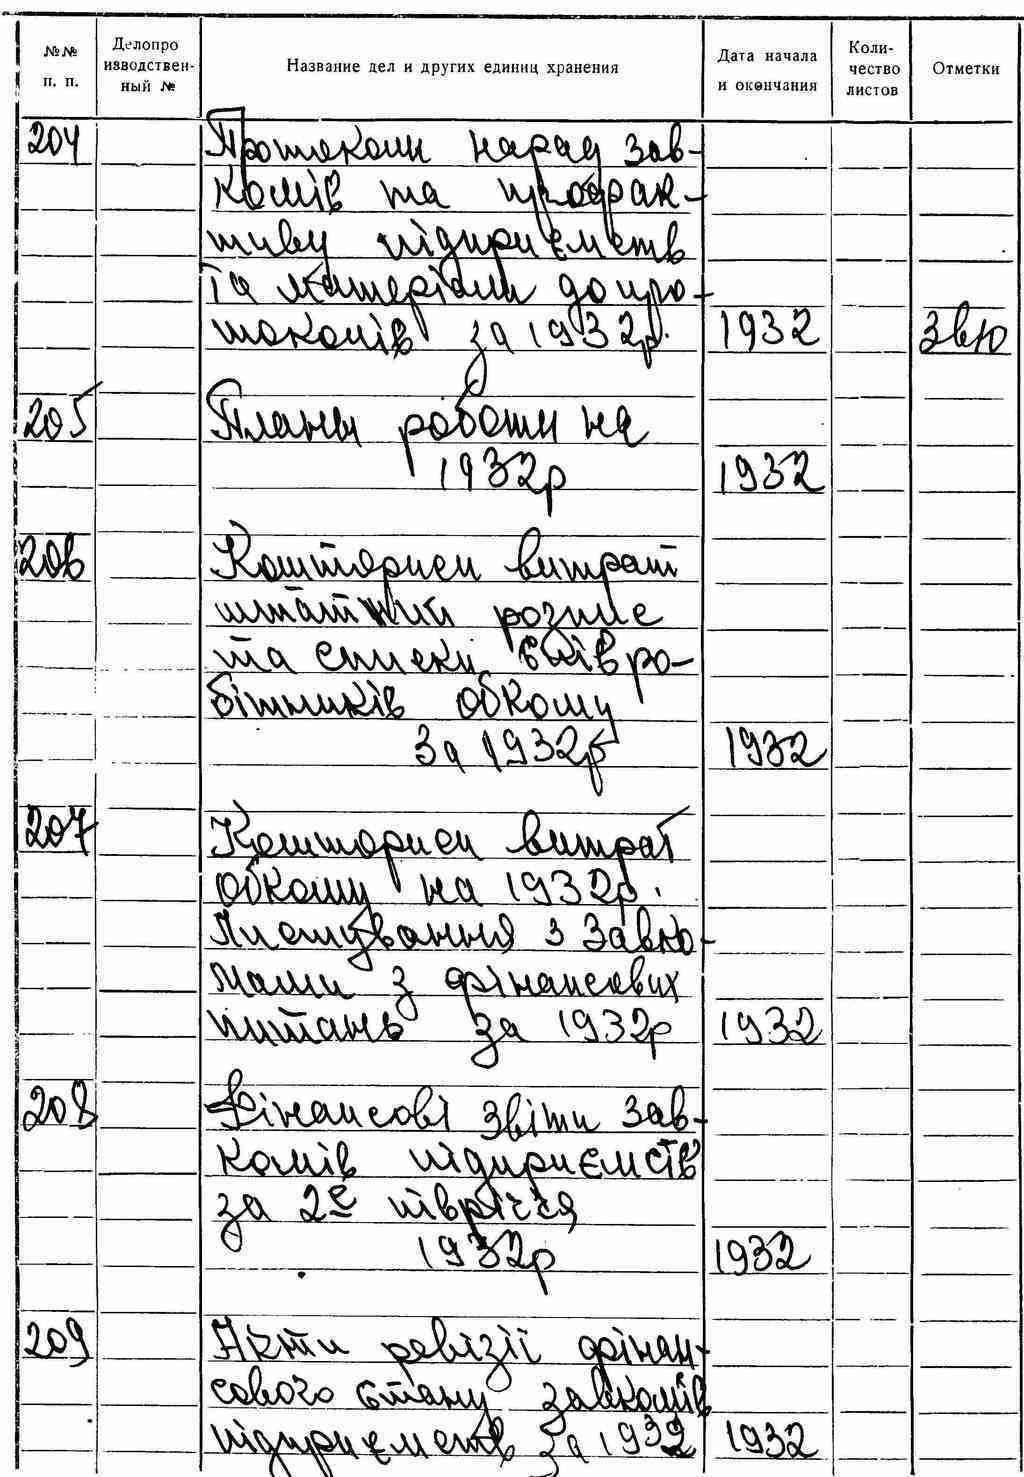 №№ п. п. Делопроизводственный № Название дел и других единиц хранения Дата начала и окончания Количество листов Отметки
204 Протоколи нарад зав-
комів та профак-
тиву підприємств
та матеріали до про-
токолів за 1932р. 1932 Звю
205 Планы роботи на
1932р 1932
206 Кошториси витрат
штатний розпис
та списки співро-
бітників обкому
за 1932р 1932
207 Кошториси витрат
обкому на 1932р.
Листування з завко-
мами з фінансових
питань за 1932р 1932
208 Фінансові звіти зав-
комів підприємств
за 2е півріччя
1932р 1932
209 Акти ревізії фінан-
сового стану завкомів
підприємств за 1932 1932